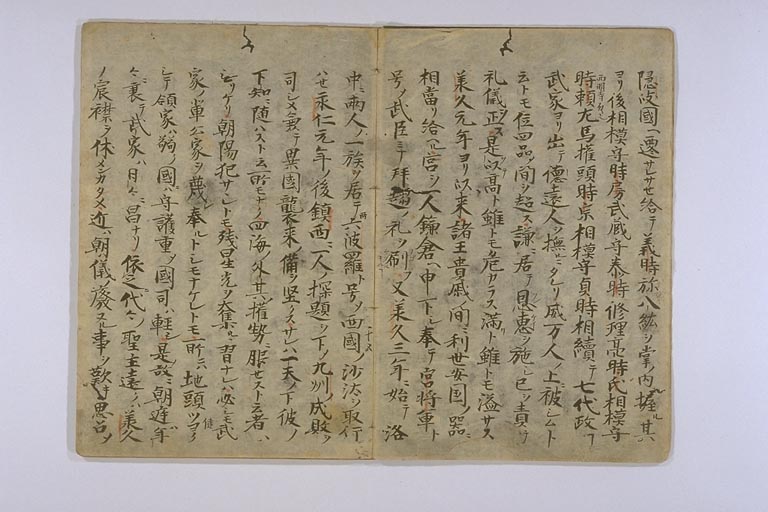 隠岐國ヘ遷サレサセ給テ義時弥八紘ヲ掌ノ内ニ握ル其
ヨリ後相模守時房武蔵守泰時修理亮時氏相模守
時頼左馬権頭時宗相模守貞時相續テ七代政
武家ヨリ出テ徳遠人ヲ撫ニタレリ威万人ノ上ニ被シムト
云トモ位四品ノ間ヲ超ス謙ニ居テ恩恵ヲ施シ己ヲ責テ
礼儀ヲ正ス是以高ト雖トモ危カラス満ト雖トモ溢サス
承久元年ヨリ以来諸王貴戚ノ間ニ利世安國ノ器ニ
相當リ給ル宮ヲ一人鎌倉ヘ申下シ奉テ宮将軍ト
号ノ武臣皆拝趨ノ礼ヲ刷フ又承久三年ニ始テ洛
中ニ両人ノ一族ヲ居テ六波羅ト号メ西國ノ沙汰ヲ取行
ハセ永仁元年ノ後鎮西ニ一人ノ探題ヲ下シ九州ノ成敗ヲ
司シメ氣テ異國襲来ノ備ヲ堅クスサレハ一天ノ下彼ノ
下知ニ随ハスト云所モナク四海ノ外其権勢ニ服セスト云者ハ
ナカリケリ朝陽犯サレトモ残星光ヲ奪ルヽ習ナレハ必シモ武
家ノ輩公家ヲ蔑シ奉ルトシモナケレトモ所ニハ地頭ツヨク
シテ領家ハ弱ク國ニハ守護重メ國司ハ軽シ是故ニ朝廷年
々ニ衰テ武家ハ日々ニ昌ナリ依之代々ノ聖主遠クハ承久
ノ宸襟ヲ休メンカタメ近ハ朝儀ノ廃スル事ヲ歎キ思召